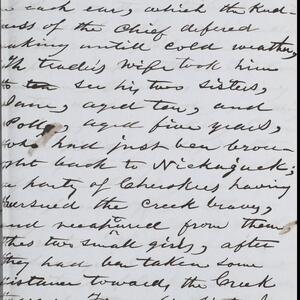 each ear, which the kind
ness of the chief defered
aking untill cold weather,
The traders wife took him
to see his two sisters,
Jane, aged ten, and
Polly, aged five years,
who had just ben brou
ght back to Nickajack;
a party of Cherokees having
pursued the Creek braves,
and recaptured from them
thes two small girls, after
they had ben taken some
distance toward, the Creek